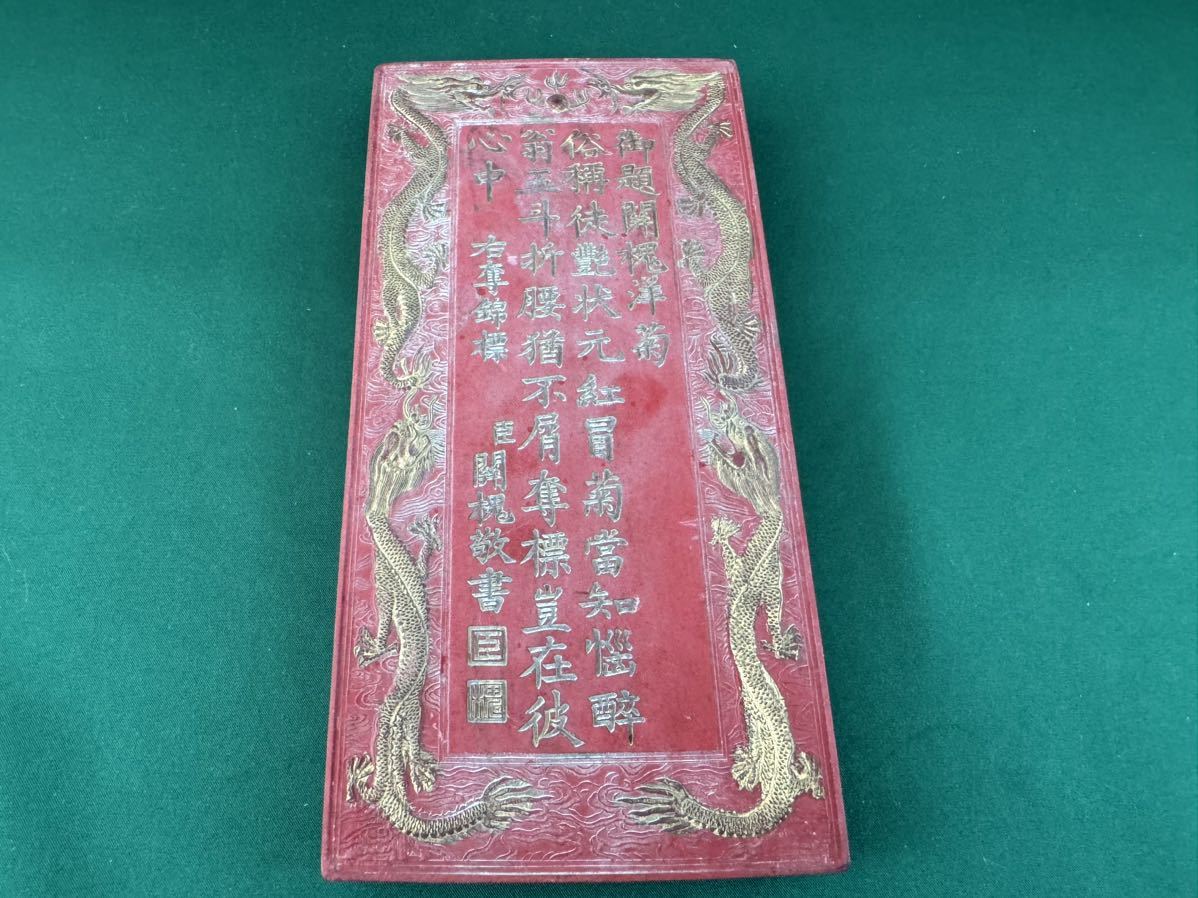 御題關槐洋菊
俗稱徒艷状元紅冒菊當知惱醉
翁五斗折腰猶不屑奪標豈在彼
心中 右奪錦標 臣關槐敬書
臣
槐